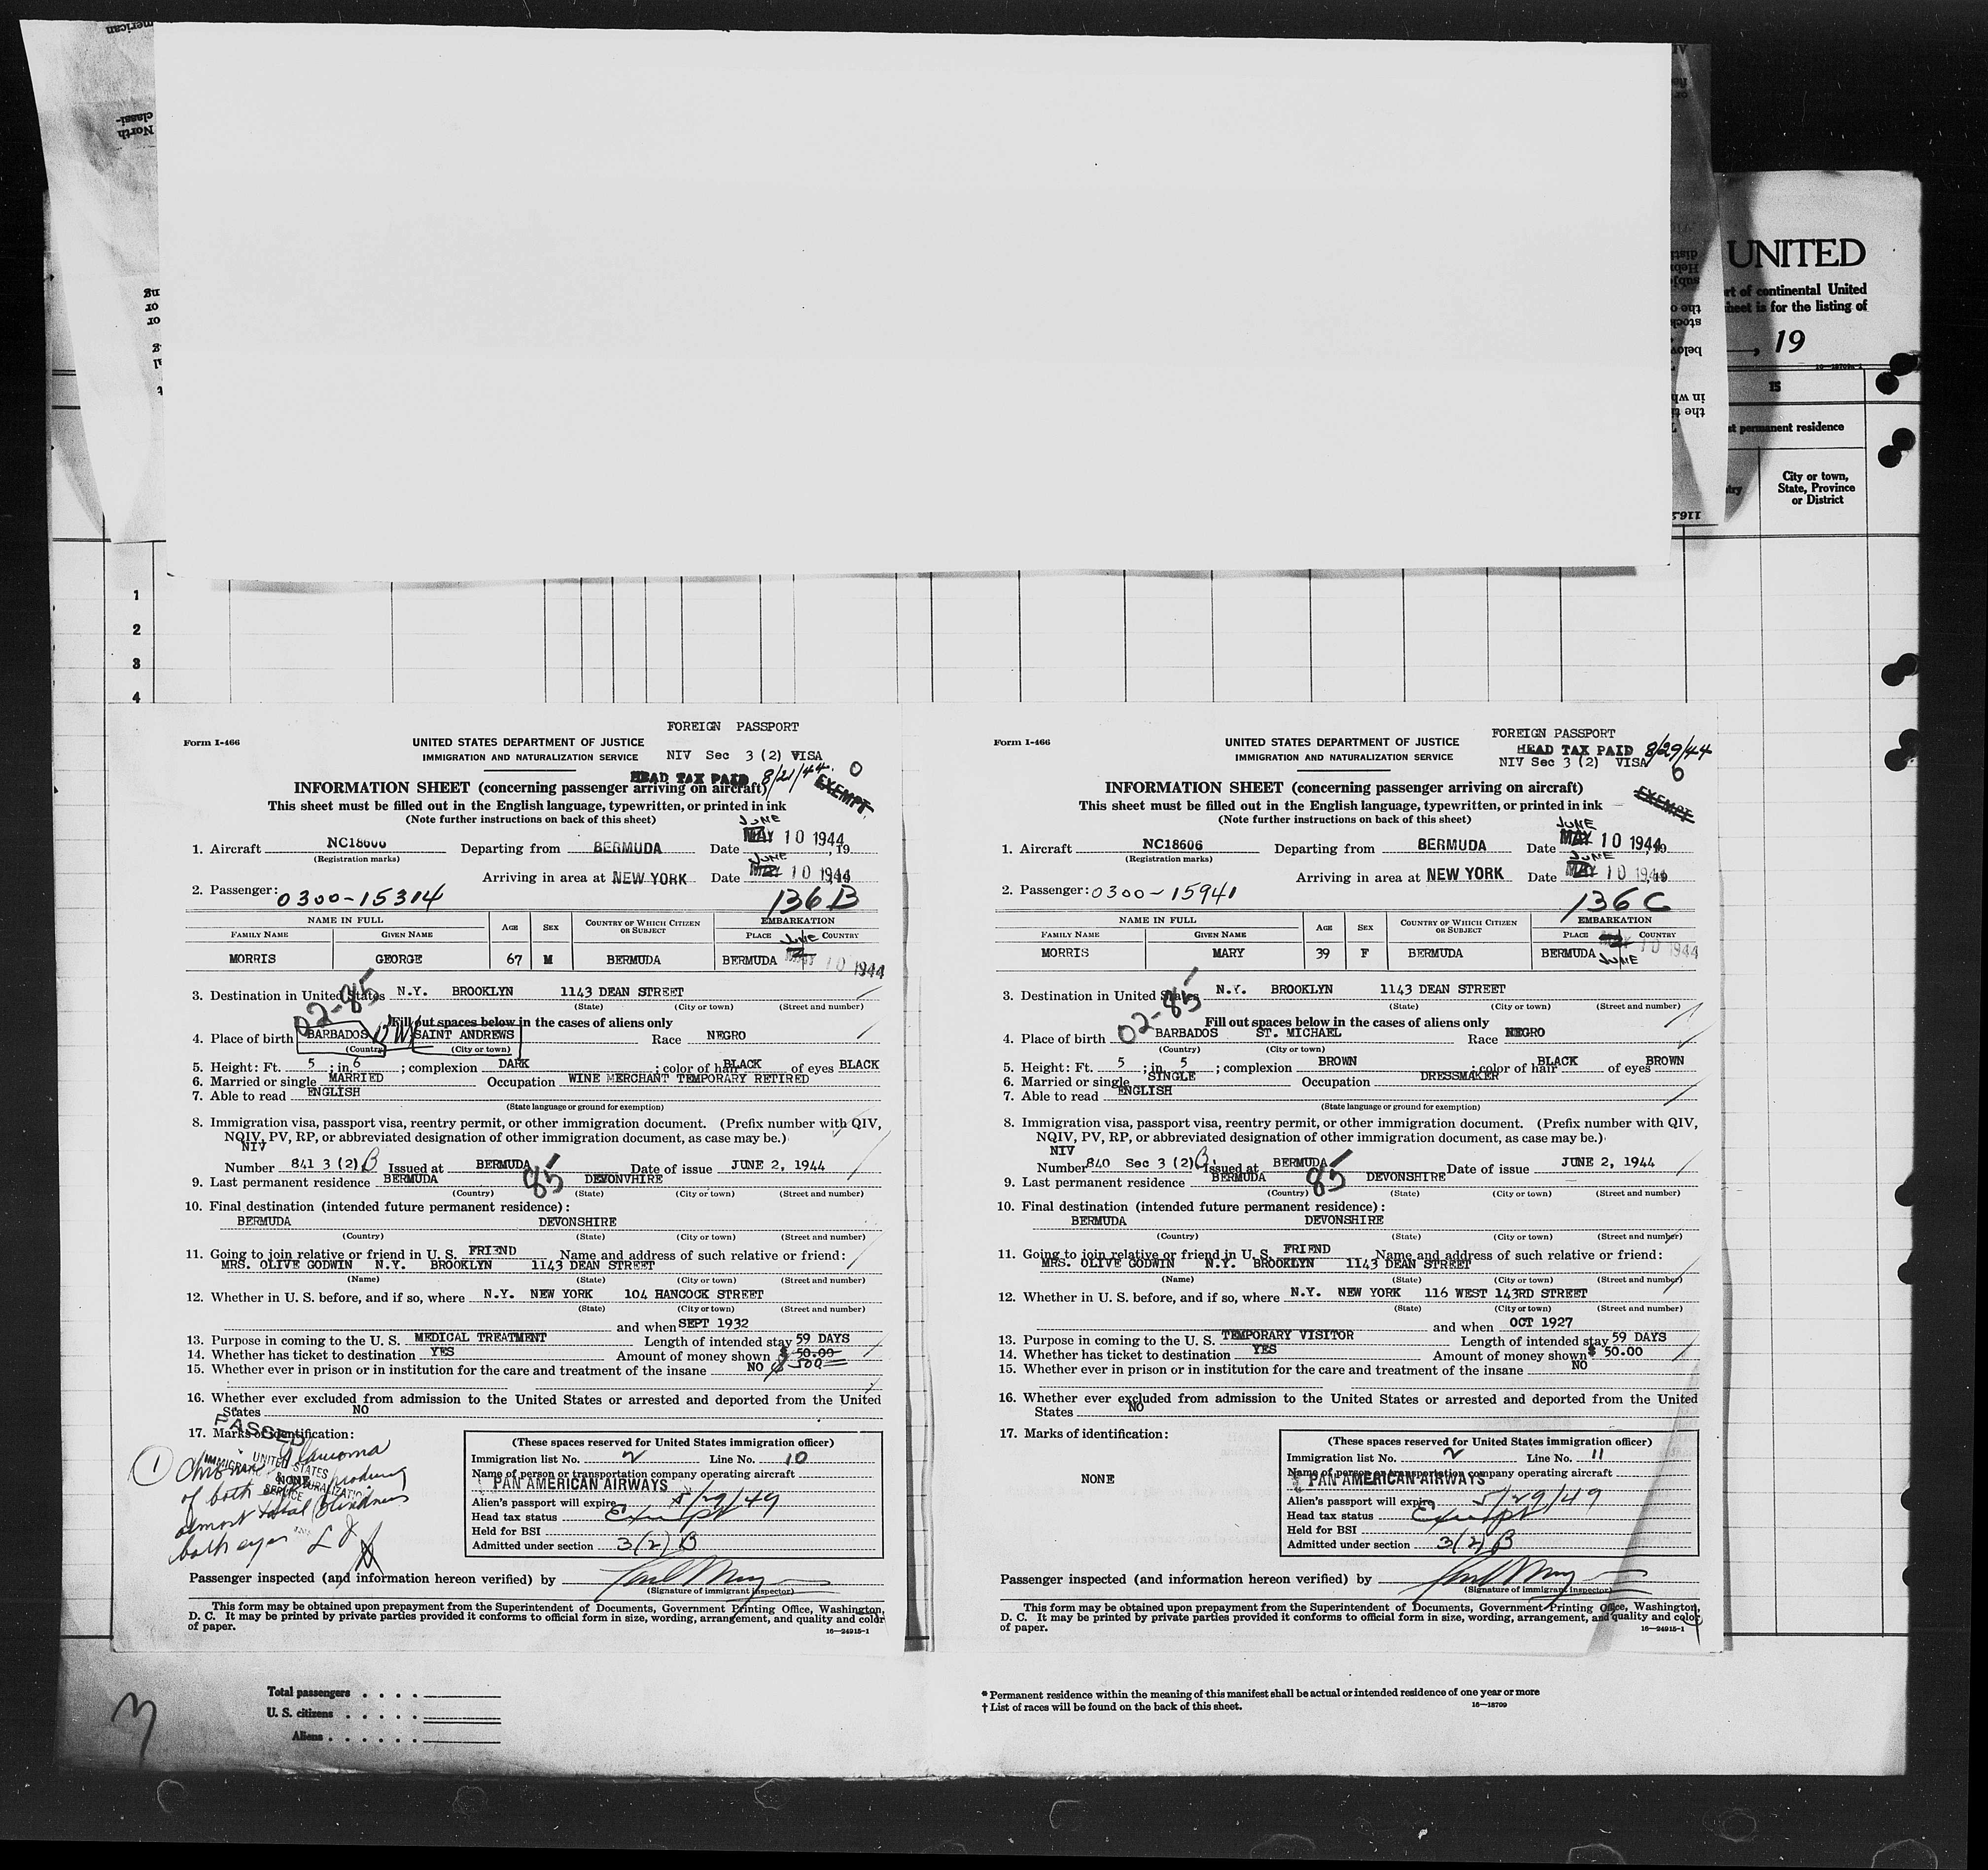 UNITED
rt of continental United
sheet is for the listing of
, 19
15
st permanent residence
City or town,
State, Province
or District
1
2
3
4
FOREIGN PASSPORT
Form I-466
UNITED STATES DEPARTMENT OF JUSTICE
NIV Sec 3 (2) VISA
IMMIGRATION AND NATURALIZATION SERVICE
HEAD TAX PAID 8/21/44. 0
EXEMPT
INFORMATION SHEET (concerning passenger arriving on aircraft)
This sheet must be filled out in the English language, typewritten, or printed in ink
(Note further instructions on back of this sheet)
JUNE
1. Aircraft NC18606 Departing from BERMUDA Date MAY 10 1944, 19
(Registration marks)
JUNE
Arriving in area at NEW YORK Date MAY 10 1944
2. Passenger: 0300-15314 136 B
NAME IN FULL AGE SEX COUNTRY OF WHICH CITIZEN OR SUBJECT EMBARKATION
FAMILY NAME GIVEN NAME PLACE COUNTRY
JUNE
MORRIS GEORGE 67 M BERMUDA BERMUDA MAY 10 1944
3. Destination in United States N.Y. BROOKLYN 1143 DEAN STREET
(State) (City or town) (Street and number)
02-85
Fill out spaces below in the cases of aliens only
4. Place of birth BARBADOS BWI SAINT ANDREWS Race NEGRO
(Country) (City or town)
5. Height: Ft. 5 ; in 6 ; complexion DARK ; color of hair BLACK of eyes BLACK
6. Married or single MARRIED Occupation WINE MERCHANT TEMPORARY RETIRED
7. Able to read ENGLISH
(State language or ground for exemption)
8. Immigration visa, passport visa, reentry permit, or other immigration document. (Prefix number with QIV,
NQIV, PV, RP, or abbreviated designation of other immigration document, as case may be.)
NIV
Number 841 3 (2) B Issued at BERMUDA Date of issue JUNE 2, 1944
9. Last permanent residence BERMUDA 85 DEVONVHIRE
(Country) (State) (City or town) (Street and number)
10. Final destination (intended future permanent residence):
BERMUDA DEVONSHIRE
(Country) (State) (City or town) (Street and number)
11. Going to join relative or friend in U. S. FRIEND Name and address of such relative or friend:
MRS. OLIVE GODWIN N.Y. BROOKLYN 1143 DEAN STREET
(Name) (State) (City or town) (Street and number)
12. Whether in U. S. before, and if so, where N.Y. NEW YORK 104 HANCOCK STREET
(State) (City or town) (Street and number)
and when SEPT 1932
13. Purpose in coming to the U. S. MEDICAL TREATMENT Length of intended stay 59 DAYS
14. Whether has ticket to destination YES Amount of money shown $ 50.00
15. Whether ever in prison or in institution for the care and treatment of the insane NO $ 500
16. Whether ever excluded from admission to the United States or arrested and deported from the United
States NO
PASSED
17. Marks of identification:
NONE
UNITED STATES
SERVICE
1
Chronic Glaucoma
of both eyes producing
almost total blindness
both eyes
(These spaces reserved for United States immigration officer)
Immigration list No. 2 Line No. 10
Name of person or transportation company operating aircraft
PAN AMERICAN AIRWAYS
Alien's passport will expire 5/29/49
Head tax status Exempt
Held for BSI
Admitted under section 3(2) B
Passenger inspected (and information hereon verified) by
(Signature of immigrant inspector)
This form may be obtained upon prepayment from the Superintendent of Documents, Government Printing Office, Washington,
D. C. It may be printed by private parties provided it conforms to official form in size, wording, arrangement, and quality and color
of paper.
16—24915-1
FOREIGN PASSPORT
Form I-466
UNITED STATES DEPARTMENT OF JUSTICE
HEAD TAX PAID 8/29/44
IMMIGRATION AND NATURALIZATION SERVICE
NIV Sec 3 (2) VISA
EXEMPT
INFORMATION SHEET (concerning passenger arriving on aircraft)
This sheet must be filled out in the English language, typewritten, or printed in ink
(Note further instructions on back of this sheet)
JUNE
1. Aircraft NC18606 Departing from BERMUDA Date MAY 10 1944, 19
(Registration marks)
JUNE
Arriving in area at NEW YORK Date MAY 10 1944
2. Passenger: 0300-15941 136 C
NAME IN FULL AGE SEX COUNTRY OF WHICH CITIZEN OR SUBJECT EMBARKATION
FAMILY NAME GIVEN NAME PLACE COUNTRY
MORRIS MARY 39 F BERMUDA BERMUDA 10 1944
JUNE
3. Destination in United States N.Y. BROOKLYN 1143 DEAN STREET
(State) (City or town) (Street and number)
02-85
Fill out spaces below in the cases of aliens only
4. Place of birth BARBADOS ST. MICHAEL Race NEGRO
(Country) (City or town)
5. Height: Ft. 5 ; in 5 ; complexion BROWN ; color of hair BLACK of eyes BROWN
6. Married or single SINGLE Occupation DRESSMAKER
7. Able to read ENGLISH
(State language or ground for exemption)
8. Immigration visa, passport visa, reentry permit, or other immigration document. (Prefix number with QIV,
NQIV, PV, RP, or abbreviated designation of other immigration document, as case may be.)
NIV
Number 840 Sec 3 (2) B Issued at BERMUDA Date of issue JUNE 2, 1944
9. Last permanent residence BERMUDA 85 DEVONSHIRE
(Country) (State) (City or town) (Street and number)
10. Final destination (intended future permanent residence):
BERMUDA DEVONSHIRE
(Country) (State) (City or town) (Street and number)
11. Going to join relative or friend in U. S. FRIEND Name and address of such relative or friend:
MRS. OLIVE GODWIN N.Y. BROOKLYN 1143 DEAN STREET
(Name) (State) (City or town) (Street and number)
12. Whether in U. S. before, and if so, where N.Y. NEW YORK 116 WEST 143RD STREET
(State) (City or town) (Street and number)
and when OCT 1927
13. Purpose in coming to the U. S. TEMPORARY VISITOR Length of intended stay 59 DAYS
14. Whether has ticket to destination YES Amount of money shown $ 50.00
15. Whether ever in prison or in institution for the care and treatment of the insane NO
16. Whether ever excluded from admission to the United States or arrested and deported from the United
States NO
17. Marks of identification:
NONE
(These spaces reserved for United States immigration officer)
Immigration list No. 2 Line No. 11
Name of person or transportation company operating aircraft
PAN AMERICAN AIRWAYS
Alien's passport will expire 5/29/49
Head tax status Exempt
Held for BSI
Admitted under section 3(2) B
Passenger inspected (and information hereon verified) by
(Signature of immigrant inspector)
This form may be obtained upon prepayment from the Superintendent of Documents, Government Printing Office, Washington,
D. C. It may be printed by private parties provided it conforms to official form in size, wording, arrangement, and quality and color
of paper.
16—24915-1
3
Total passengers
U. S. citizens
Aliens
* Permanent residence within the meaning of this manifest shall be actual or intended residence of one year or more
† List of races will be found on the back of this sheet.
16—18709